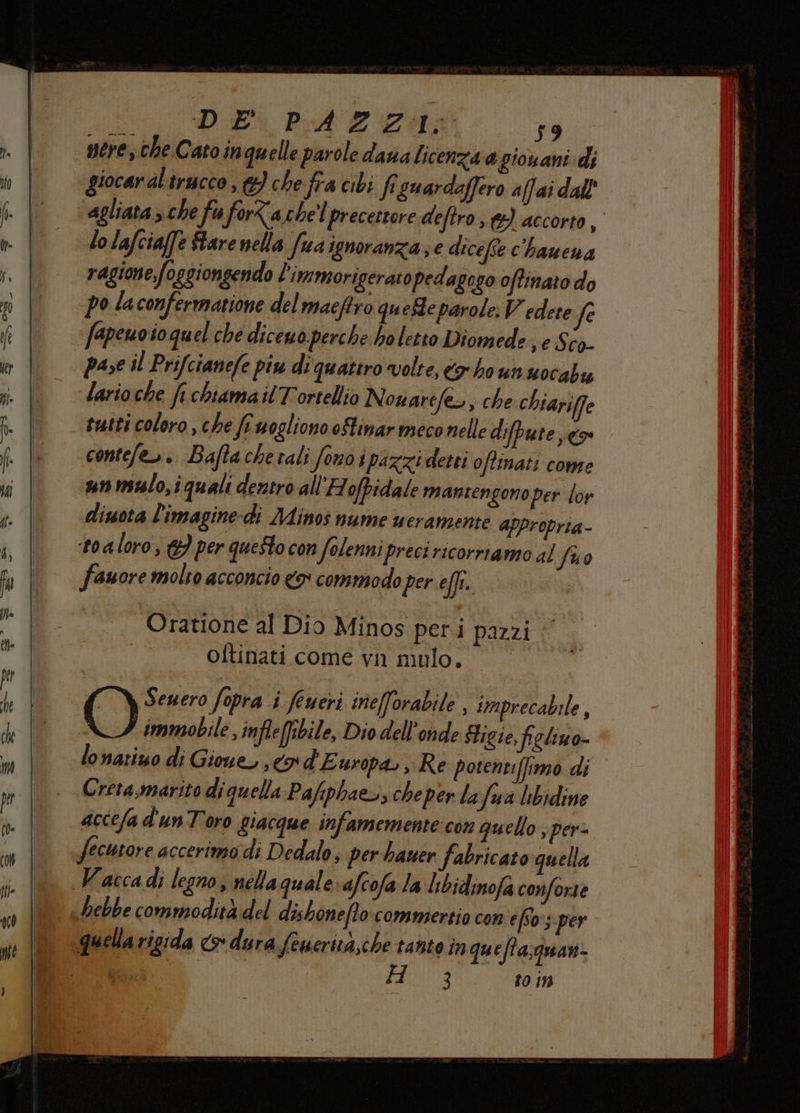 DE' PAZZI. 59
uere, che Cato in quelle parole daua licenza a giouani di
giocar al trucco, & che fra cibi si guardassero assai dall'
agliata, che fu forza che'l precettore destro, & accorto,
lo lasciasse stare nella sua ignoranza, e dicesse c'haueua
ragione, soggiongendo l'immorigerato pedagogo ostinato do
po la confermatione del maestro queste parole. Vedete se
sapeuo io quel che diceuo. perche ho letto Diomede, e Sco-
pa, e il Priscianese piu di quattro volte, & ho un uocabu
lario che si chiama il Tortellio Nouarese, che chiarisse
tutti coloro, che si uogliono ostinar meco nelle dispute, &
contese. Basta che tali sono i pazzi detti ostinati come
un mulo, i quali dentro all'Hospidale mantengono per lor
diuota l'imagine di Minos nume ueramente appropria-
to a loro, & per questo con solenni preci ricorriamo al suo
fauore molto acconcio & commodo per essi.
Oratione al Dio Minos per i pazzi
ostinati come vn mulo.
O Seuero sopra i seueri inessorabile, imprecabile,
immobile, inflessibile, Dio dell'onde stigie, figliuo-
lo natiuo di Gioue, & d'Europa, Re potentissimo di
Creta, marito di quella Pasiphae, che per la sua libidine
accesa d'un Toro giacque infamemente con quello, per-
secutore accerimo di Dedalo, per hauer fabricato quella
Vacca di legno, nella quale ascosa la libidinosa consorte
hebbe commodità del dishonesto commertio con esso; per
quella rigida & dura seuerità, che tanto in questa, quan-
H 3 to in